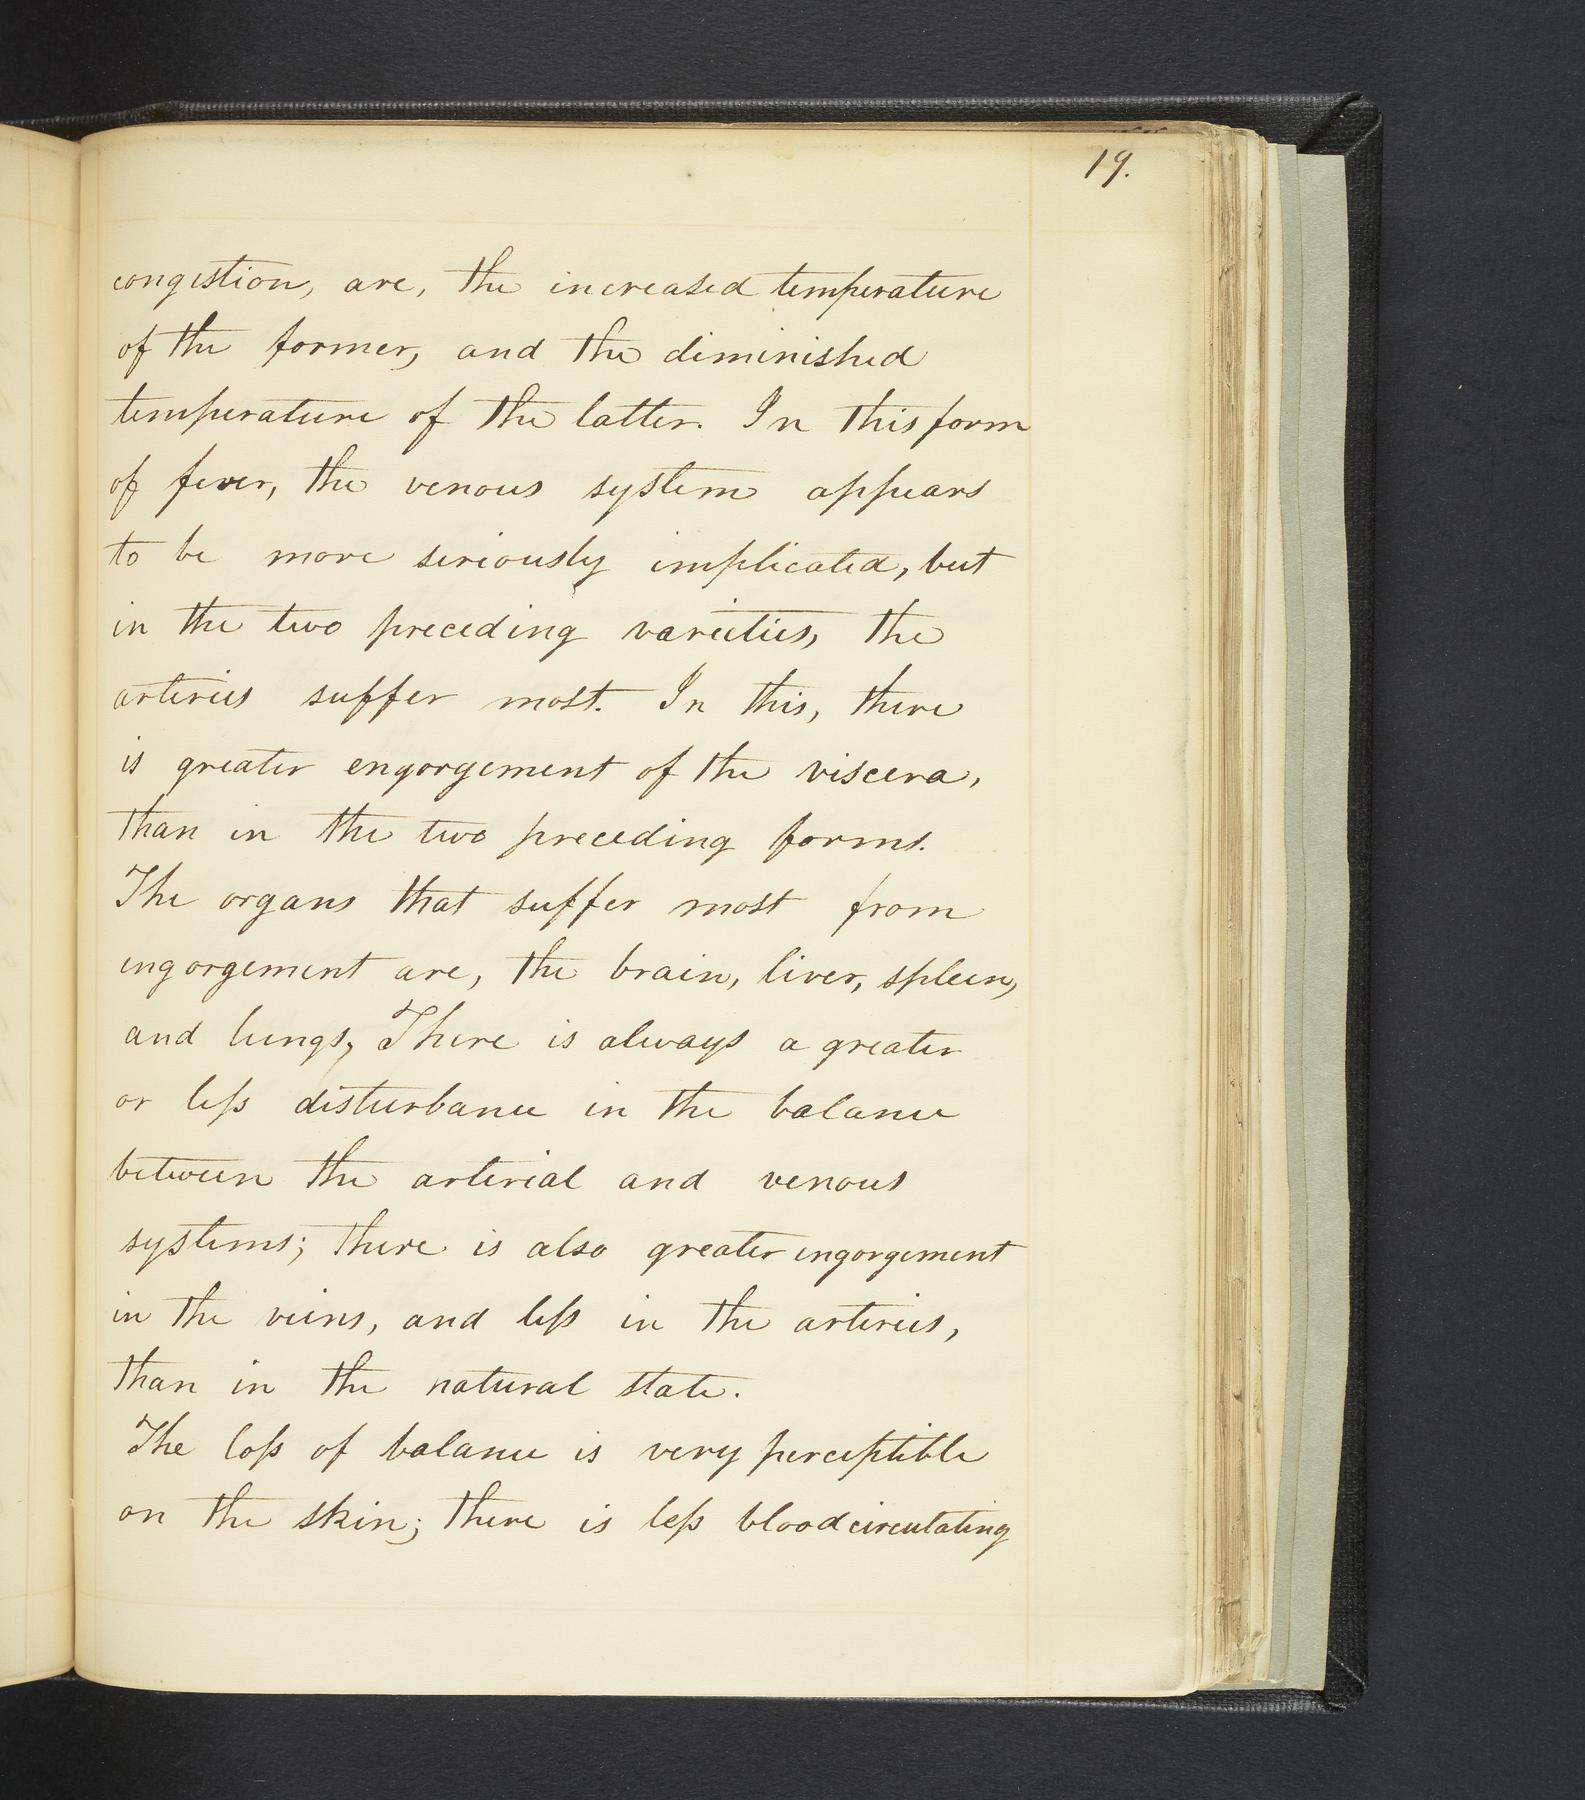 19.
congestion, are, the increased temperature
of the former, and the diminished
temperature of the latter. In this form
of fever, the venous system appears
to be more seriously implicated, but
in the two preceding varieties, the
arteries suffer most. In this, there
is greater engorgement of the viscera,
than in the two preceding forms.
The organs that suffer most from
engorgement are, the brain, liver, spleen,
and lungs, There is always a greater
or less disturbance in the balance
between the arterial and venous
systems; there is also greater engorgement
in the veins, and less in the arteries,
than in the natural state.
The loss of balance is very perceptible
on the skin; there is less blood circulating